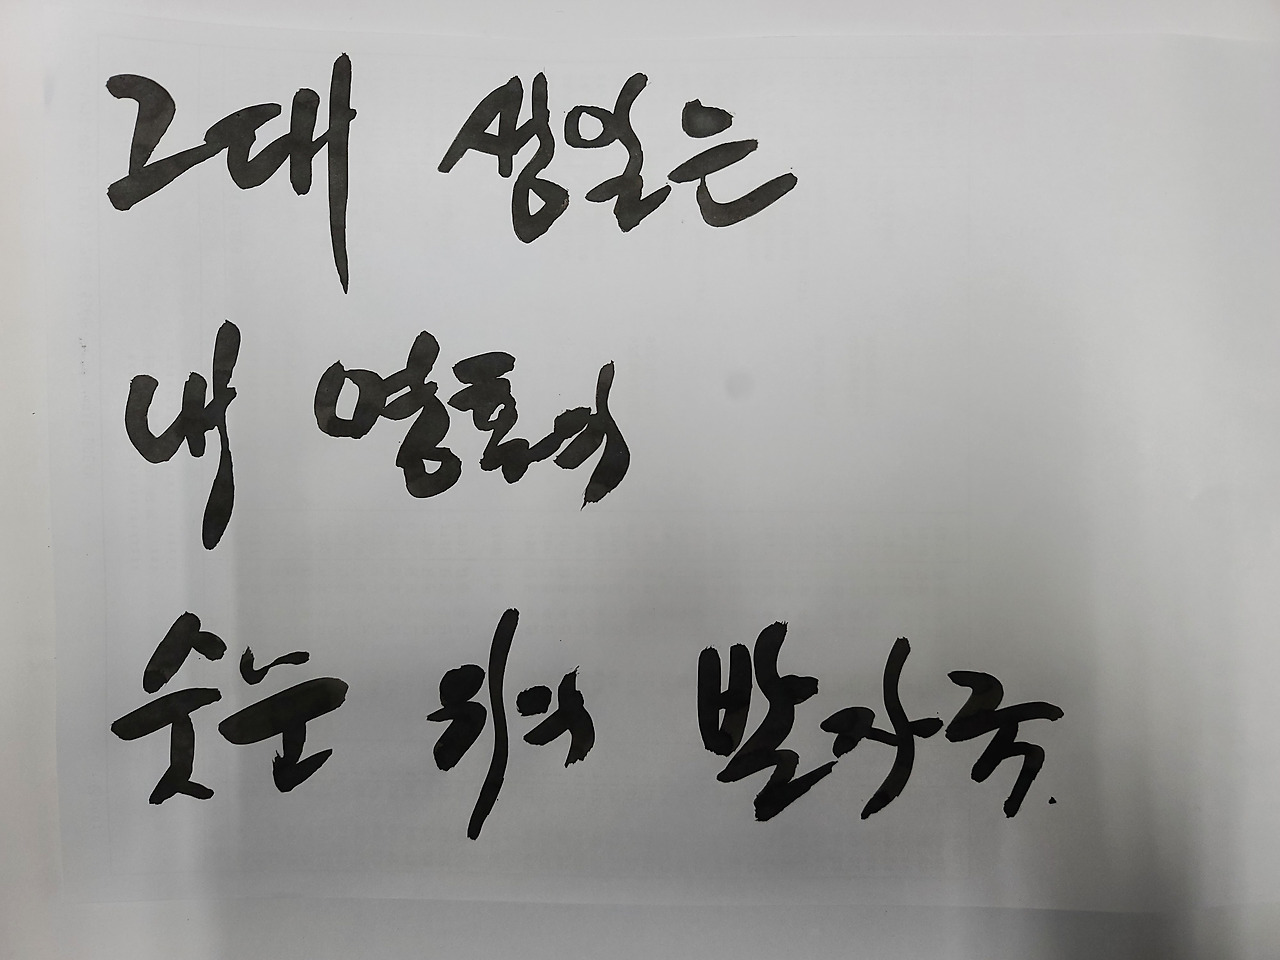 그대 생일은
내 영혼의
숫눈 위의 발자국.